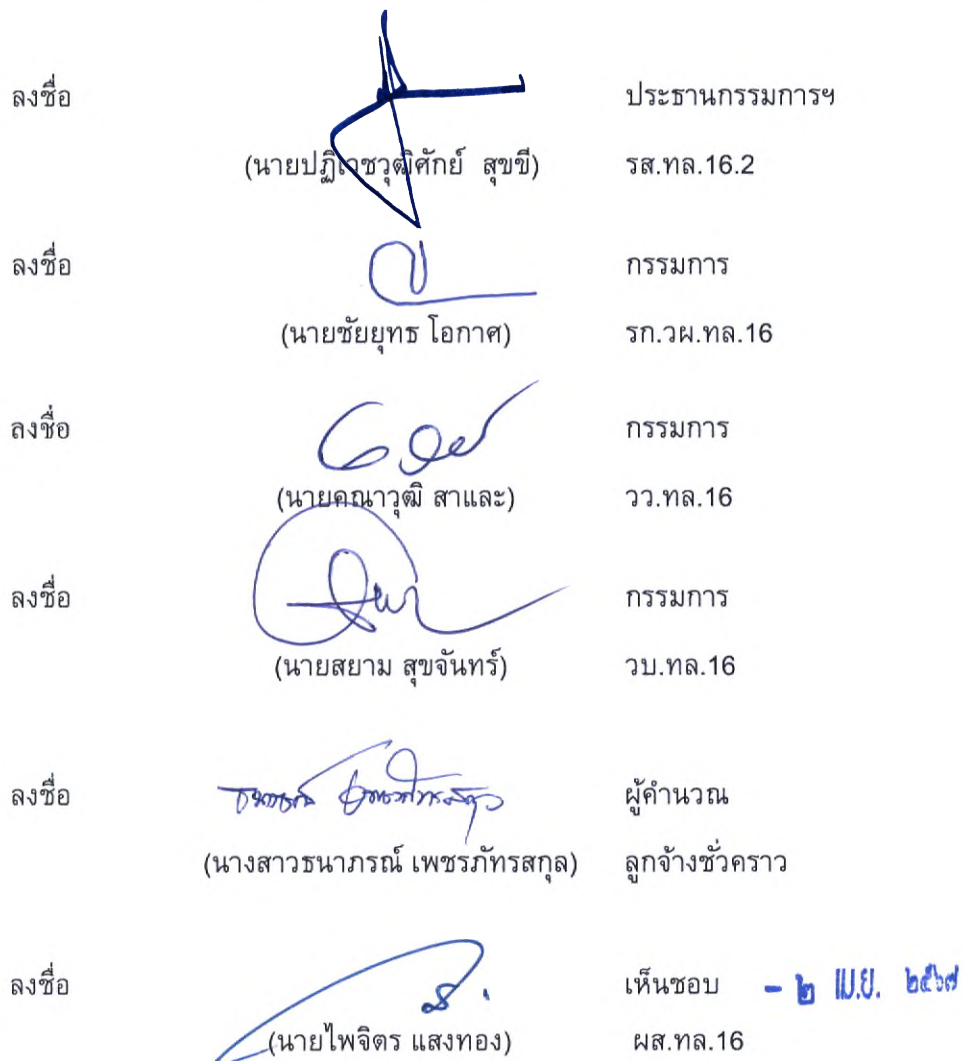 ลงชื่อ ประธานกรรมการฯ
(นายปฏิเวชวุฒิศักย์ สุขขี) รส.ทล.16.2
ลงชื่อ กรรมการ
(นายชัยยุทธ โอกาศ) รก.วผ.ทล.16
ลงชื่อ กรรมการ
(นายคณาวุฒิ สาและ) วว.ทล.16
ลงชื่อ กรรมการ
(นายสยาม สุขจันทร์) วบ.ทล.16
ลงชื่อ ผู้คำนวณ
(นางสาวธนาภรณ์ เพชรภัทรสกุล) ลูกจ้างชั่วคราว
ลงชื่อ เห็นชอบ - ๒ เม.ย. ๒๕๖๗
(นายไพจิตร แสงทอง) ผส.ทล.16